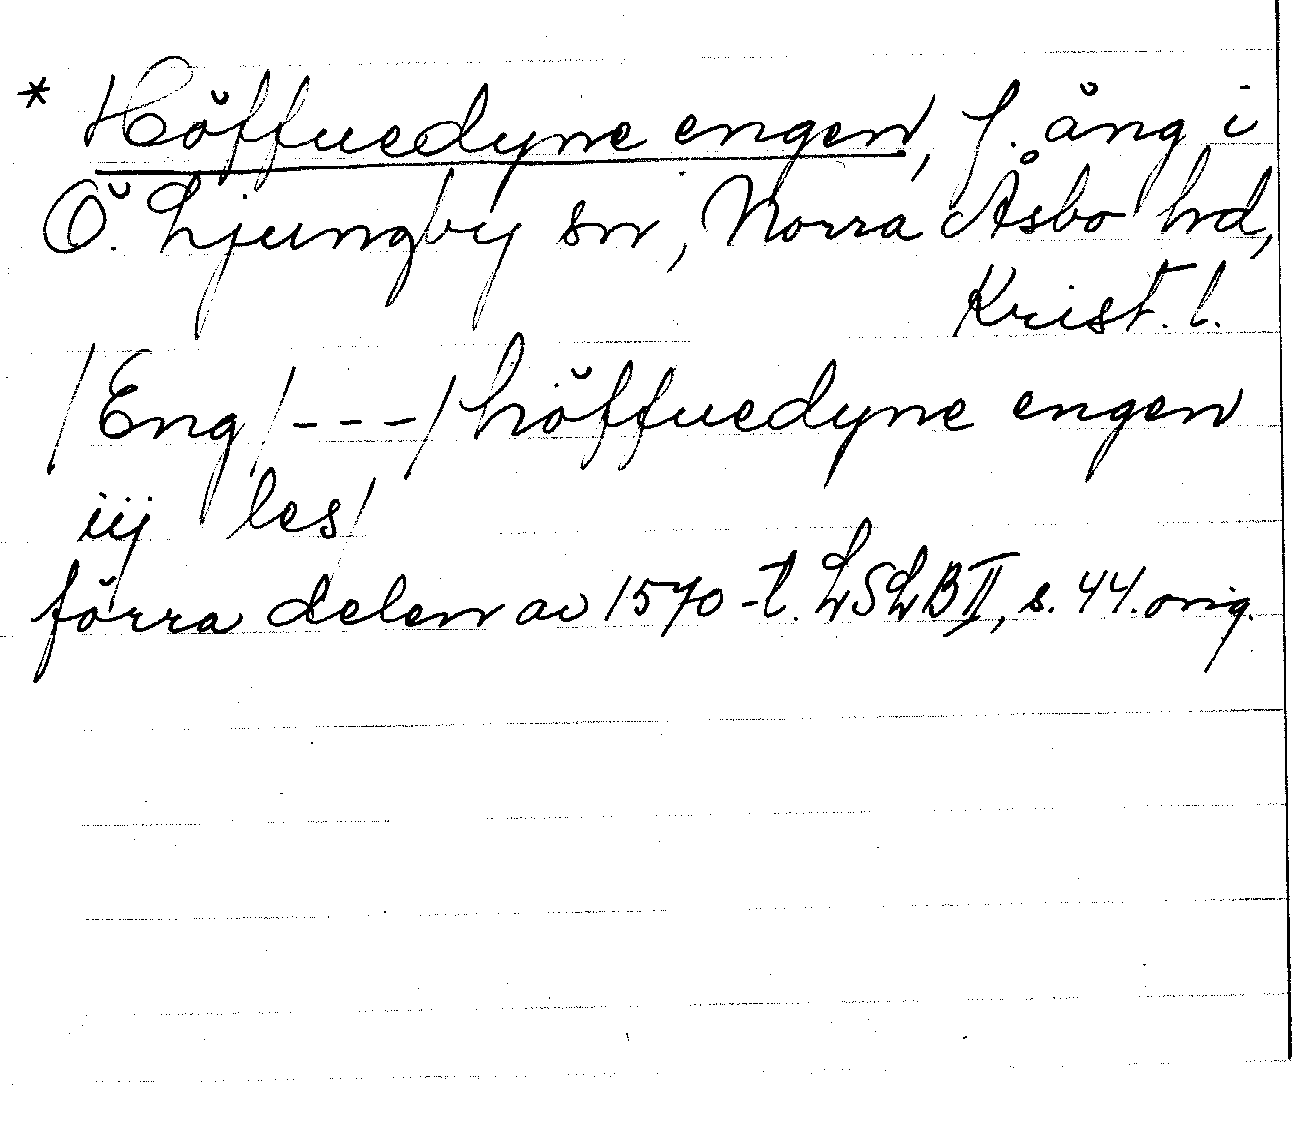 * Höffuedyne engen, f. äng i
Ö. Ljungby sn, Norra Åsbo hd,
Krist. l.
/Eng/---/höffuedyne engen
iij les/
förra delen av 1570-t. LSLB II, s. 44. orig.